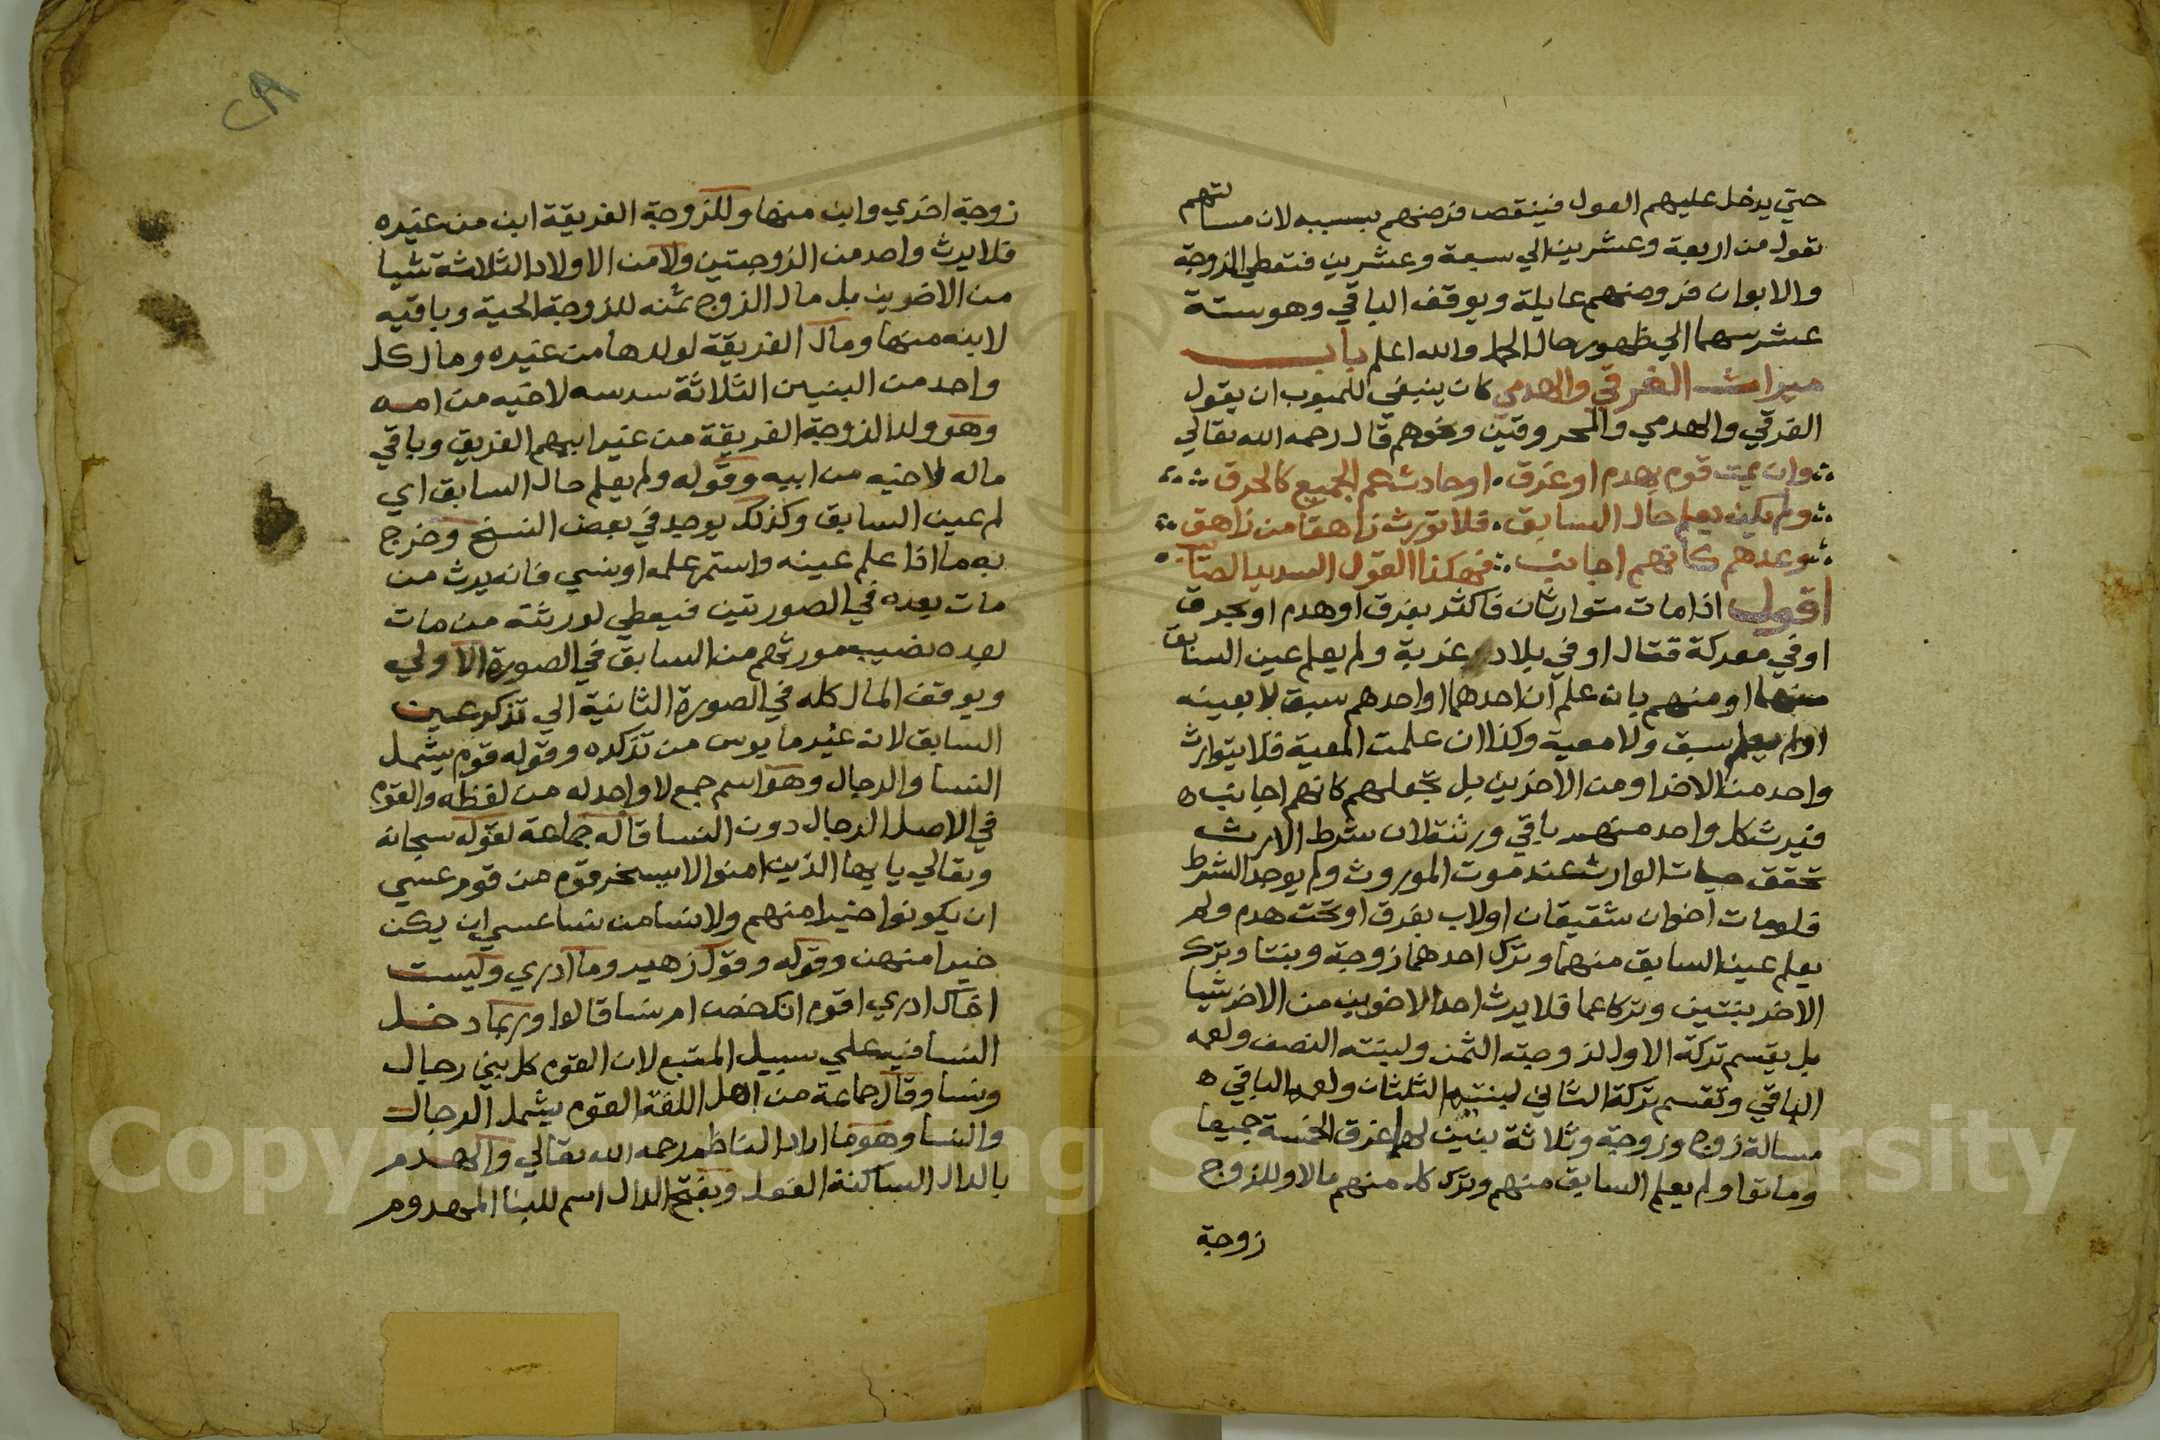 حتي يدخل عليهم العول فينقص فرضهم بسببه لان مسالتهم
تعول من اربعة وعشرين الي سبعة وعشرين فتعطي الزوجة
والابوان فروضهم عايلة ويوقف الباقي وهو ستة
عشر سهما الي ظهور حال الحمل والله اعلم باب
ميراث الغرقي والهدمي كان ينبغي للمبوب ان يقول
الغرقي والهدمي والمحروقين ونحوهم قال رحمه الله تعالي
وان يمت قوم بهدم او غرق او حادث عم الجميع كالحرق
ولم يكن يعلم حال السابق فلا تورث زاهقا من زاهق
وعدهم كانهم اجانب فهكذا القول السديد الصائب
اقول اذا مات متوارثان فاكثر بغرق او هدم او بحرق
او في معركة قتال او في بلاد غربة ولم يعلم عين السابق
منهما او منهم بان علم ان احدهما او احدهم سبق لا بعينه
او لم يعلم سبق ولا معية وكذا ان علمت المعية فلا يتوارث
واحد من الاخر او من الاخرين بل تجعلهم كانهم اجانب ه
فيرث كل واحد منهم باقي ورثته لان شرط الارث
تحقق حيات الوارث عند موت الموروث ولم يوجد الشرط
فلو مات اخوان شقيقان او لاب بغرق او تحت هدم ولم
يعلم عين السابق منهما وترك احدهما زوجة وبنتا وترك
الاخر بنتين وتركا عما فلا يرث احد الاخوين من الاخر شيا
بل يقسم تركة الاول لزوجته الثمن ولبنته النصف ولعمه
الباقي وتقسم تركة الثاني لبنتيه الثلثان ولعمه الباقي ه
مسالة زوج وزوجة وثلاثة بنين لهما غرق الخمسة جميعا
وماتوا ولم يعلم السابق منهم وترك كل منهم مالا وللزوج
زوجة
زوجة اخري وابن منها وللزوجة الغريقة ابن من غيره
فلا يرث واحد من الزوجتين ولا من الاولاد الثلاثة شيا
من الاخرين بل مال الزوج ثمنه للزوجة الحية وباقيه
لابنه منها ومال الغريقة لولدها من غيره ومال كل
واحد من البنين الثلاثة سدسه لاخيه من امه
وهو ولد الزوجة الغريقة من غير ابيهم الغريق وباقي
ماله لاخيه من ابيه وقوله ولم يعلم حال السابق اي
لم عين السابق وكذلك يوجد في بعض النسخ وخرج
به ما اذا علم عينه واستمر علمه او نسي فانه يرث من
مات بعده في الصورتين فيعطي لورثته من مات
بعده نصيب مورثهم من السابق في الصورة الاولي
ويوقف المال كله في الصورة الثانية الي تذكر عين
السابق لانه غير مايوس من تذكره وقوله قوم يشمل
النسا والرجال وهو اسم جمع لا واحد له من لفظه والقوم
في الاصل الرجال دون النسا قاله جماعة لقوله سبحانه
وتعالي يايها الذين امنوا لا يسخر قوم من قوم عسي
ان يكونوا خيرا منهم ولا نسا من نسا عسي ان يكن
خيرا منهن وقوله وقول زهير وما ادري وليست
اخال ادري اقوم ال حصن ام نسا قالوا وربما دخل
النسا فيه علي سبيل التبع لان القوم كل نبي رجال
ونسا وقال جماعة من اهل اللغة القوم يشمل الرجال
والنسا وهو ما اراد الناظم رحمه الله تعالي والهدم
بالدال الساكنة الفعل وبفتح الدال اسم للبنا المهدوم